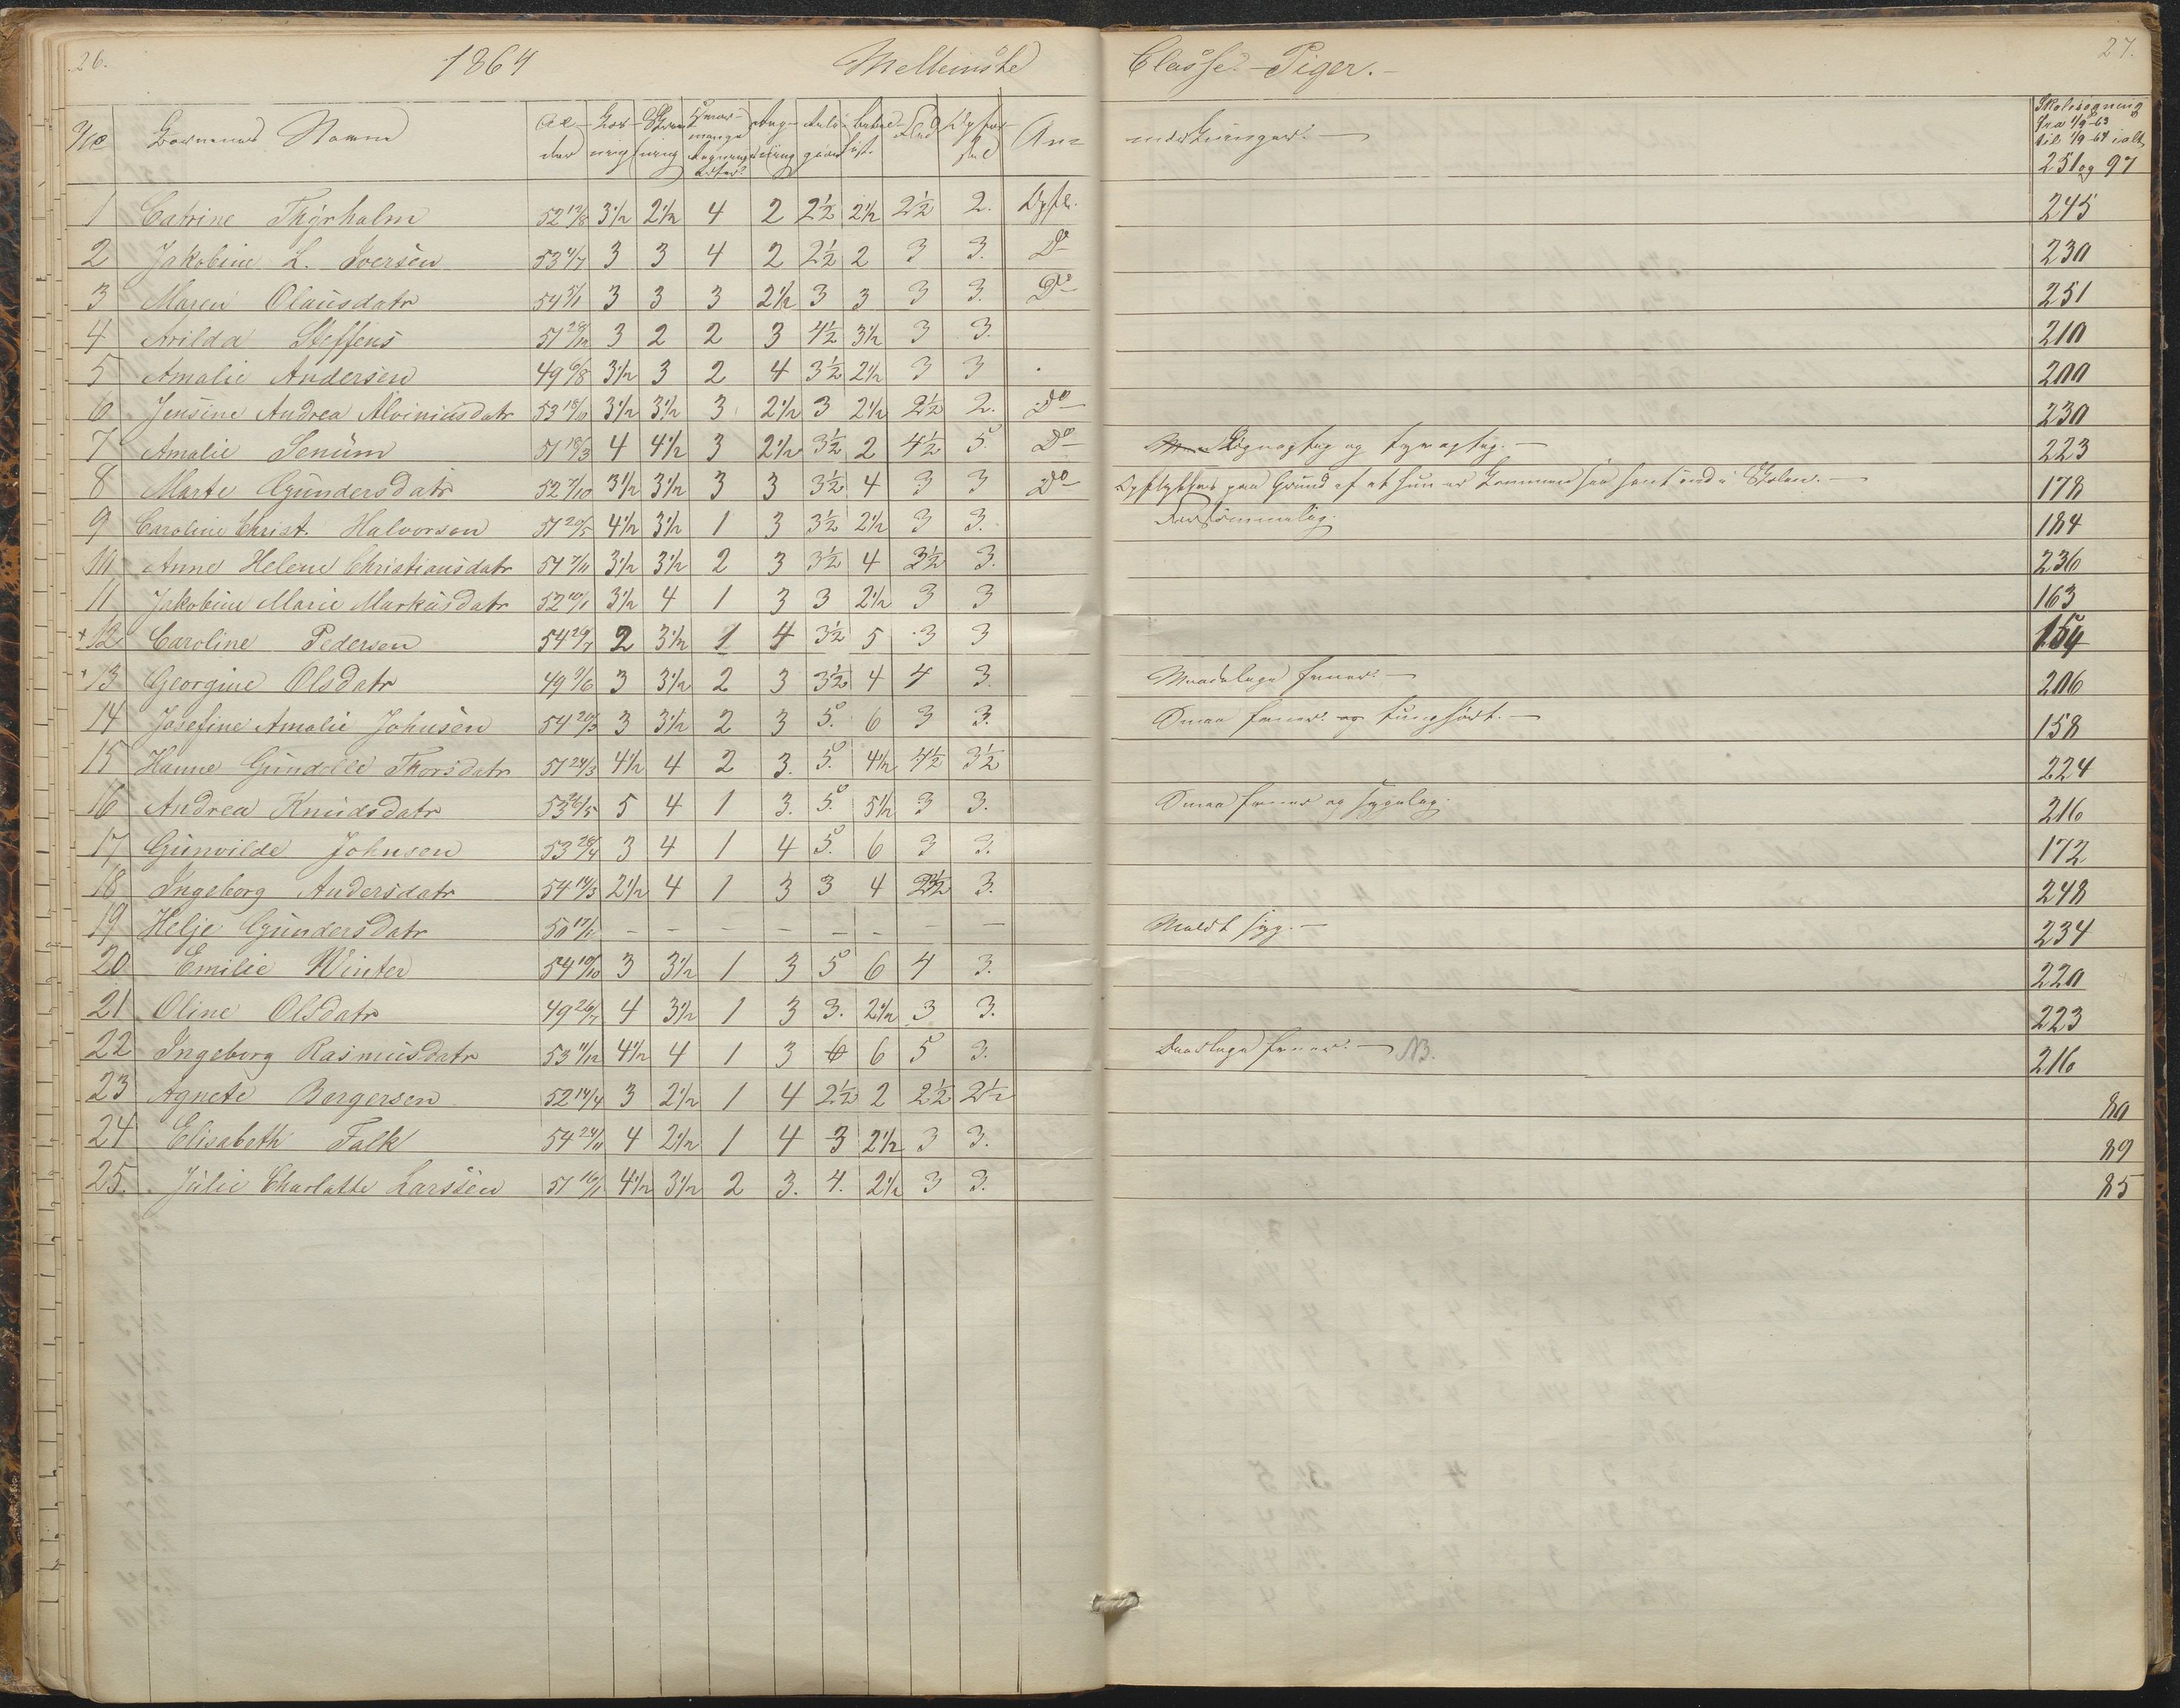 26. 1864 Mellemste Classe - Piger. - 27.
No Børnenes Navne Al-der An-mærkninger. - Skolesøgning fra 1/9-63 til 1/9-64 ialt 251 og 97
1 Catrine Thyrholm 52 12/8 3½ 2½ 4 2 2½ 2½ 2½ 2. Opfl. 245
2 Jakobine L. Iversen 53 4/7 3 3 4 2 2½ 2 3 3. Do 230
3 Maren Olausdatr 54 5/1 3 3 3 2½ 3 3 3 3. Do 251
4 Arilda Steffens 51 28/12 3 2 2 3 4½ 3½ 3 3. 210
5 Amalie Andersen 49 6/8 3½ 3 2 4 3½ 2½ 3 3 200
6 Jensine Andrea Alviniusdatr 53 18/10 3½ 3½ 3 2½ 3 2½ 2½ 2. Do 230
7 Amalie Senum 51 18/3 4 4½ 3 2½ 3½ 2 4½ 5. Do Løgnagtig og tyvagtig. - 223
8 Marte Gundersdatr 52 7/10 3½ 3½ 3 3 3½ 4 3 3 Do Opflyttes paa Grund af at hun er kommen saa sent ind i Skolen. - 178
9 Caroline Christ. Halvorsen 51 20/5 4½ 3½ 1 3 3½ 2½ 3 3. Forsømmelig. 184
10 Anne Helene Christiansdatr 54 7/11 3½ 3½ 2 3 3½ 4 3½ 3. 236
11 Jakobine Marie Markusdatr 52 10/1 3½ 4 1 3 3 2½ 3 3 163
+12 Caroline Pedersen 54 29/7 2 3½ 1 4 3½ 5 3 3 154
+13 Georgine Olsdatr 49 9/6 3 3½ 2 3 3½ 4 4 3. Maadelige Evner. - 206
14 Josefine Amalie Johnsen 54 20/3 3 3½ 2 3 5. 6 3 3. Smaa Evner og tunghørt. - 158
15 Hanne Gundelle Thorsdatr 51 24/3 4½ 4 2 3. 5. 4½ 4½ 3½ 224
16 Andrea Knudsdatr 53 26/5 5 4 1 3. 5. 5½ 3 3. Smaa Evner og sygelig. 216
17 Gunvilde Johnsen 53 28/4 3 4 1 4 5. 6 3 3. 172
18 Ingeborg Andersdatr 54 14/3 2½ 4 1 3 3 4 2½ 3. 248
19 Helje Gundersdatr 50 17/1 - - - - - - - - Meldt syg. - 234
20 Emilie Winter 54 19/10 3 3½ 1 3 5 6 4 3. 220
21 Oline Olsdatr 49 26/7 4 3½ 1 3 3. 2½ 3 3. 223
22 Ingeborg Rasmusdatr 53 11/12 4½ 4 1 3 6 6 5 3. Daarlige Evner. - NB. 216
23 Agnete Borgersen 52 14/4 3 2½ 1 4 2½ 2 2½ 2½ 80
24 Elisabeth Falk 54 24/11 4 2½ 1 4 3 2½ 3 3. 89
25. Julie Charlotte Larssen 51 16/1 4½ 3½ 2 3. 4. 2½ 3 3. 85